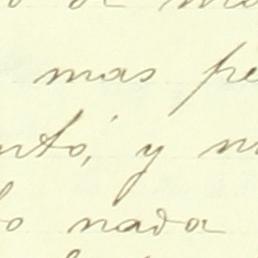 mas pe
ntó, y n
o nada